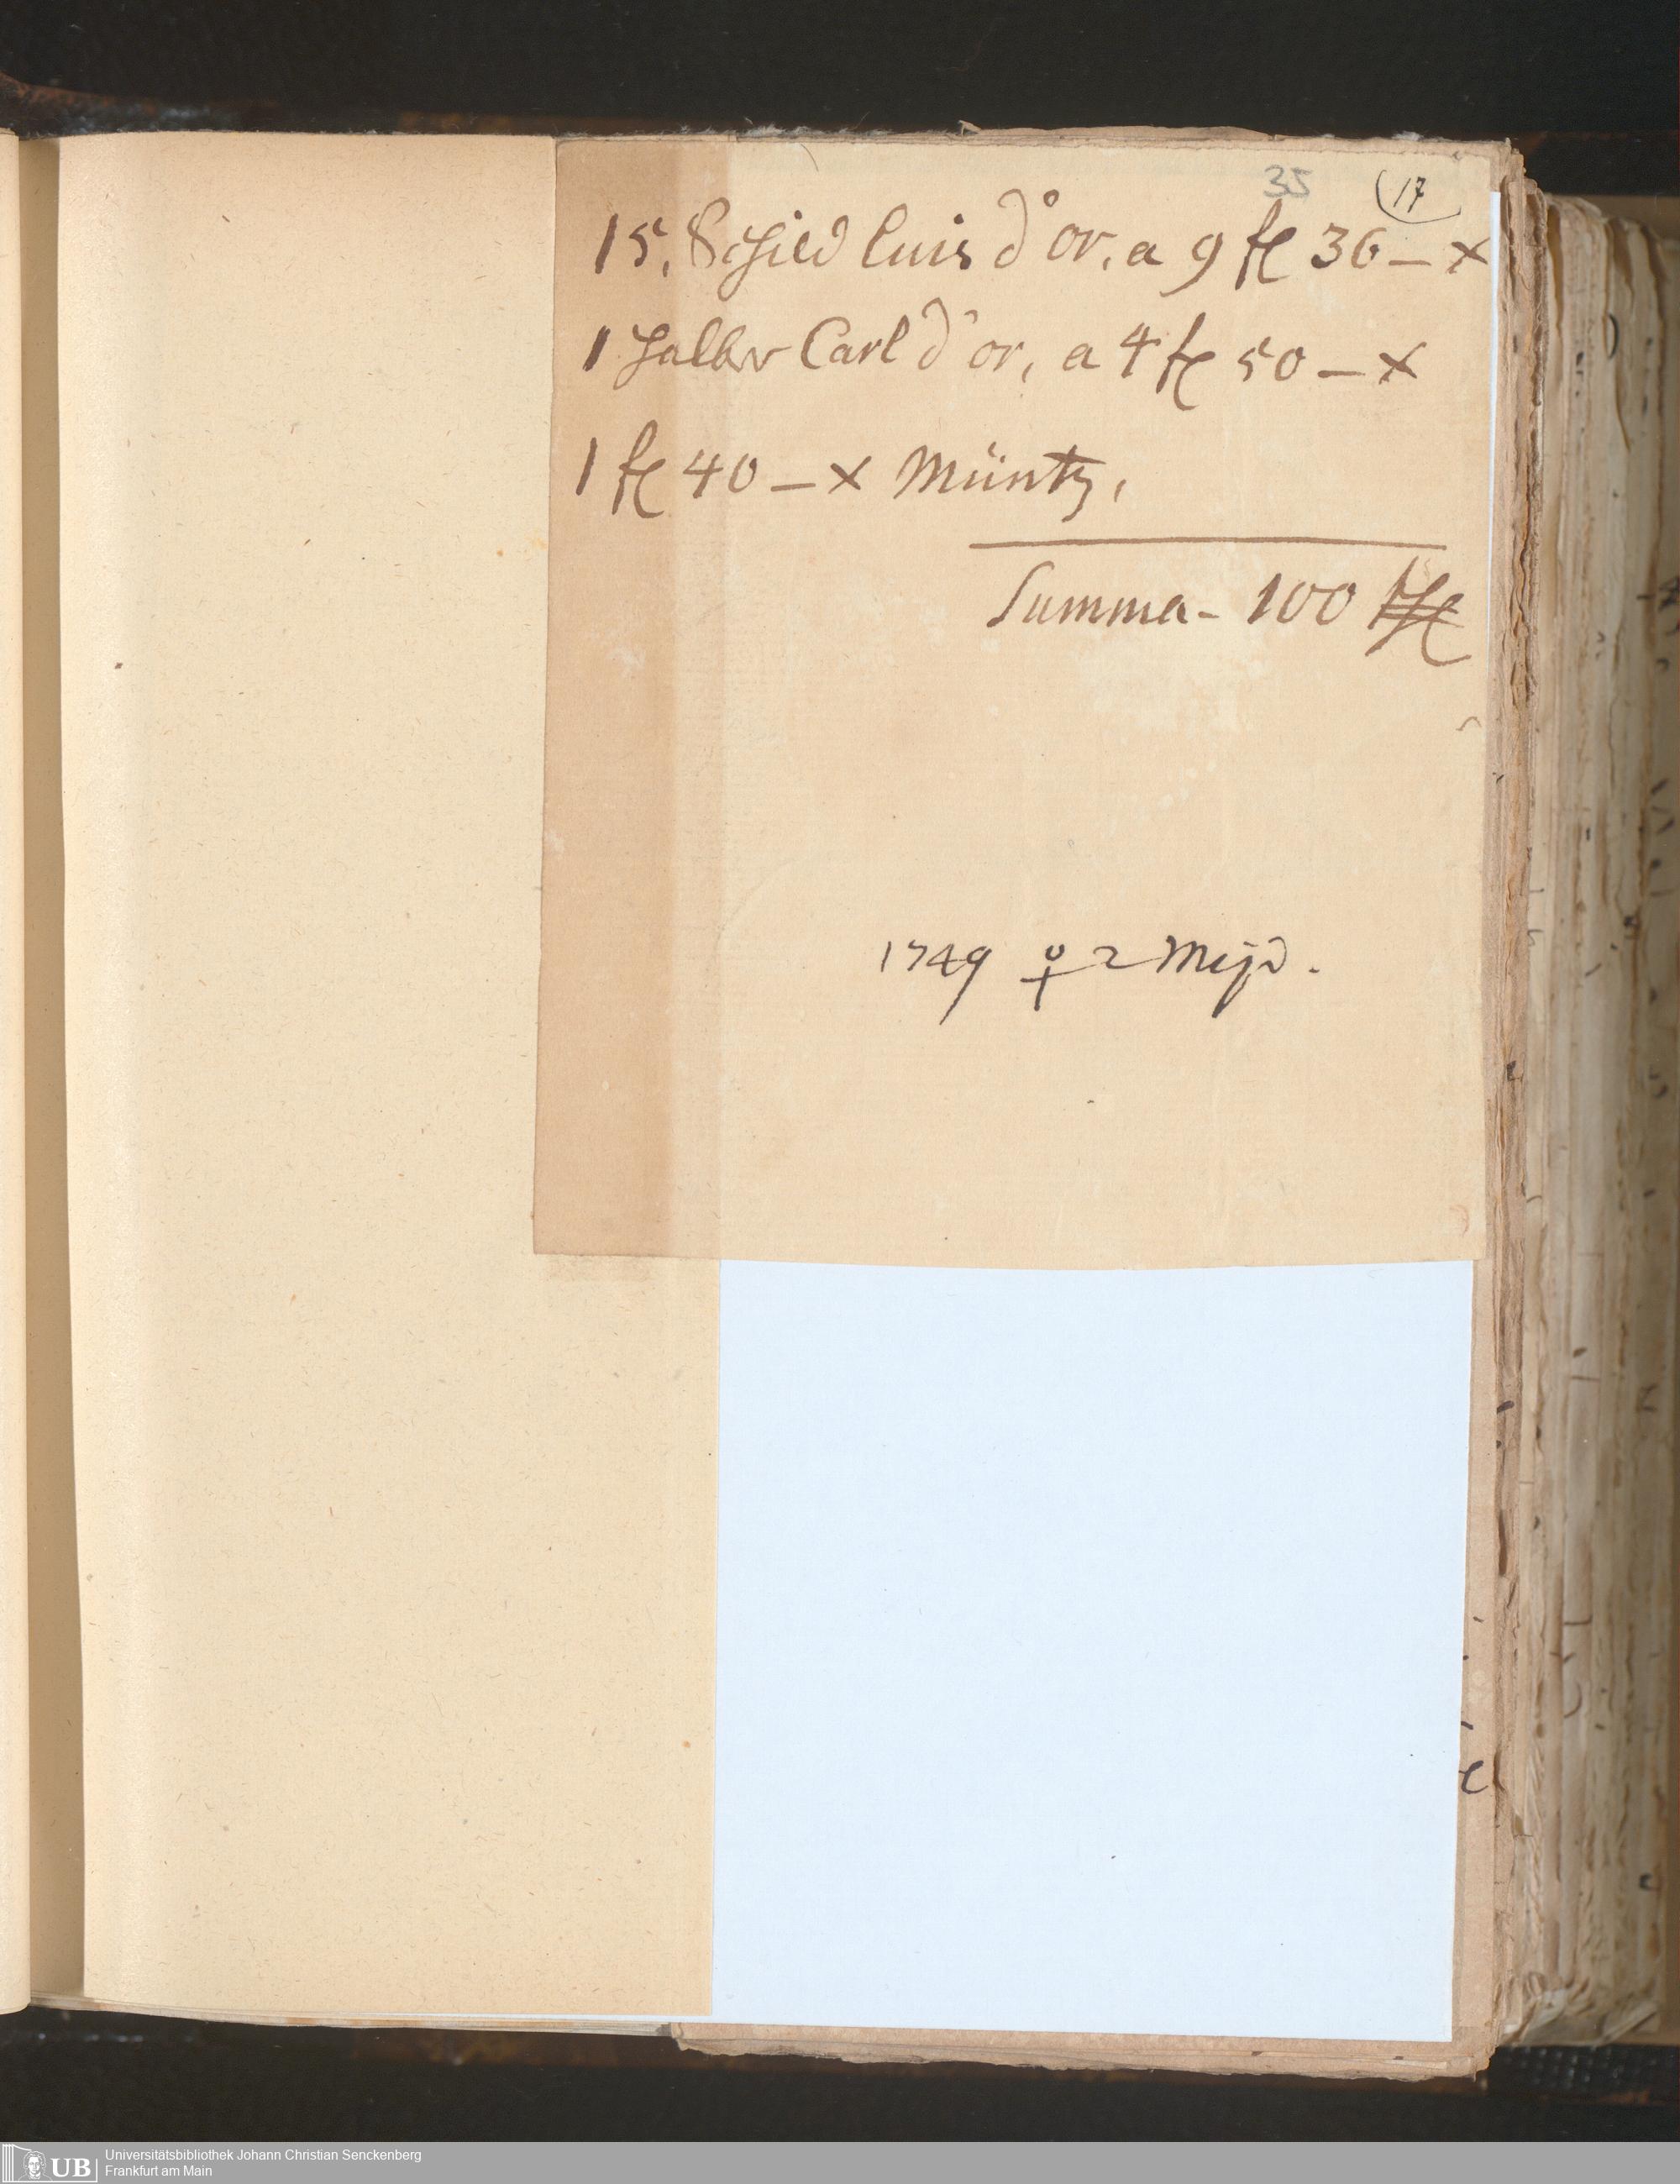 35 (17
15. Schild Luis d'or. a 9 fl 36 – x
1 halber Carl d'or, a 4 fl 50 – x
1 fl 40 – x Müntz,
Summa - 100
1749 ♀ 2
UB Universitätsbibliothek Johann Christian Senckenberg
Frankfurt am Main